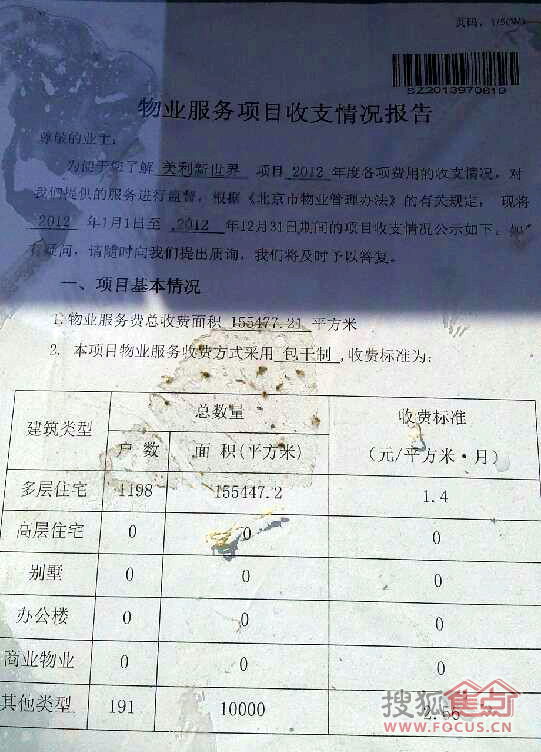 页码：1/5(W)
SZ2013970819
物业服务项目收支情况报告
尊敬的业主：
为便于您了解 美利新世界 项目 2012 年度各项费用的收支情况，对
我们提供的服务进行监督，根据《北京市物业管理办法》的有关规定，现将
2012 年1月1日至 2012 年12月31日期间的项目收支情况公示如下。如
有疑问，请随时向我们提出质询，我们将及时予以答复。
一、项目基本情况
1.物业服务费总收费面积 155477.21 平方米
2. 本项目物业服务收费方式采用 包干制 ,收费标准为:
建筑类型 总数量 收费标准
户 数 面 积(平方米) (元/平方米·月)
多层住宅 1198 155447.2 1.4
高层住宅 0 0 0
别墅 0 0 0
办公楼 0 0 0
商业物业 0 0 0
其他类型 191 10000
搜狐焦点
WWW.FOCUS.CN